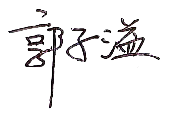 郭子溢